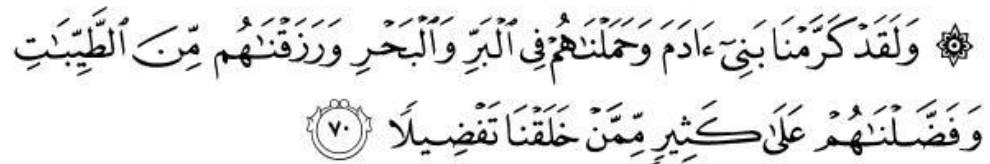 ۞ وَلَقَدۡ كَرَّمۡنَا بَنِيٓ ءَادَمَ وَحَمَلۡنَٰهُمۡ فِي ٱلۡبَرِّ وَٱلۡبَحۡرِ وَرَزَقۡنَٰهُم مِّنَ ٱلطَّيِّبَٰتِ
وَفَضَّلۡنَٰهُمۡ عَلَىٰ كَثِيرٖ مِّمَّنۡ خَلَقۡنَا تَفۡضِيلٗا ٧٠